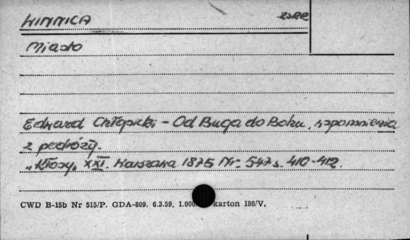 WINNICA ZSRR
Miasto
Edward Chłopicki - Od Buga do Bohu, wspomnienia
z podróży.
"Kłosy", XXI. Warszawa 1875 Nr. 547 s. 410-412.
CWD B-15b Nr 515/P. GDA-809. 6.3.59. 1.000 karton 180/V.